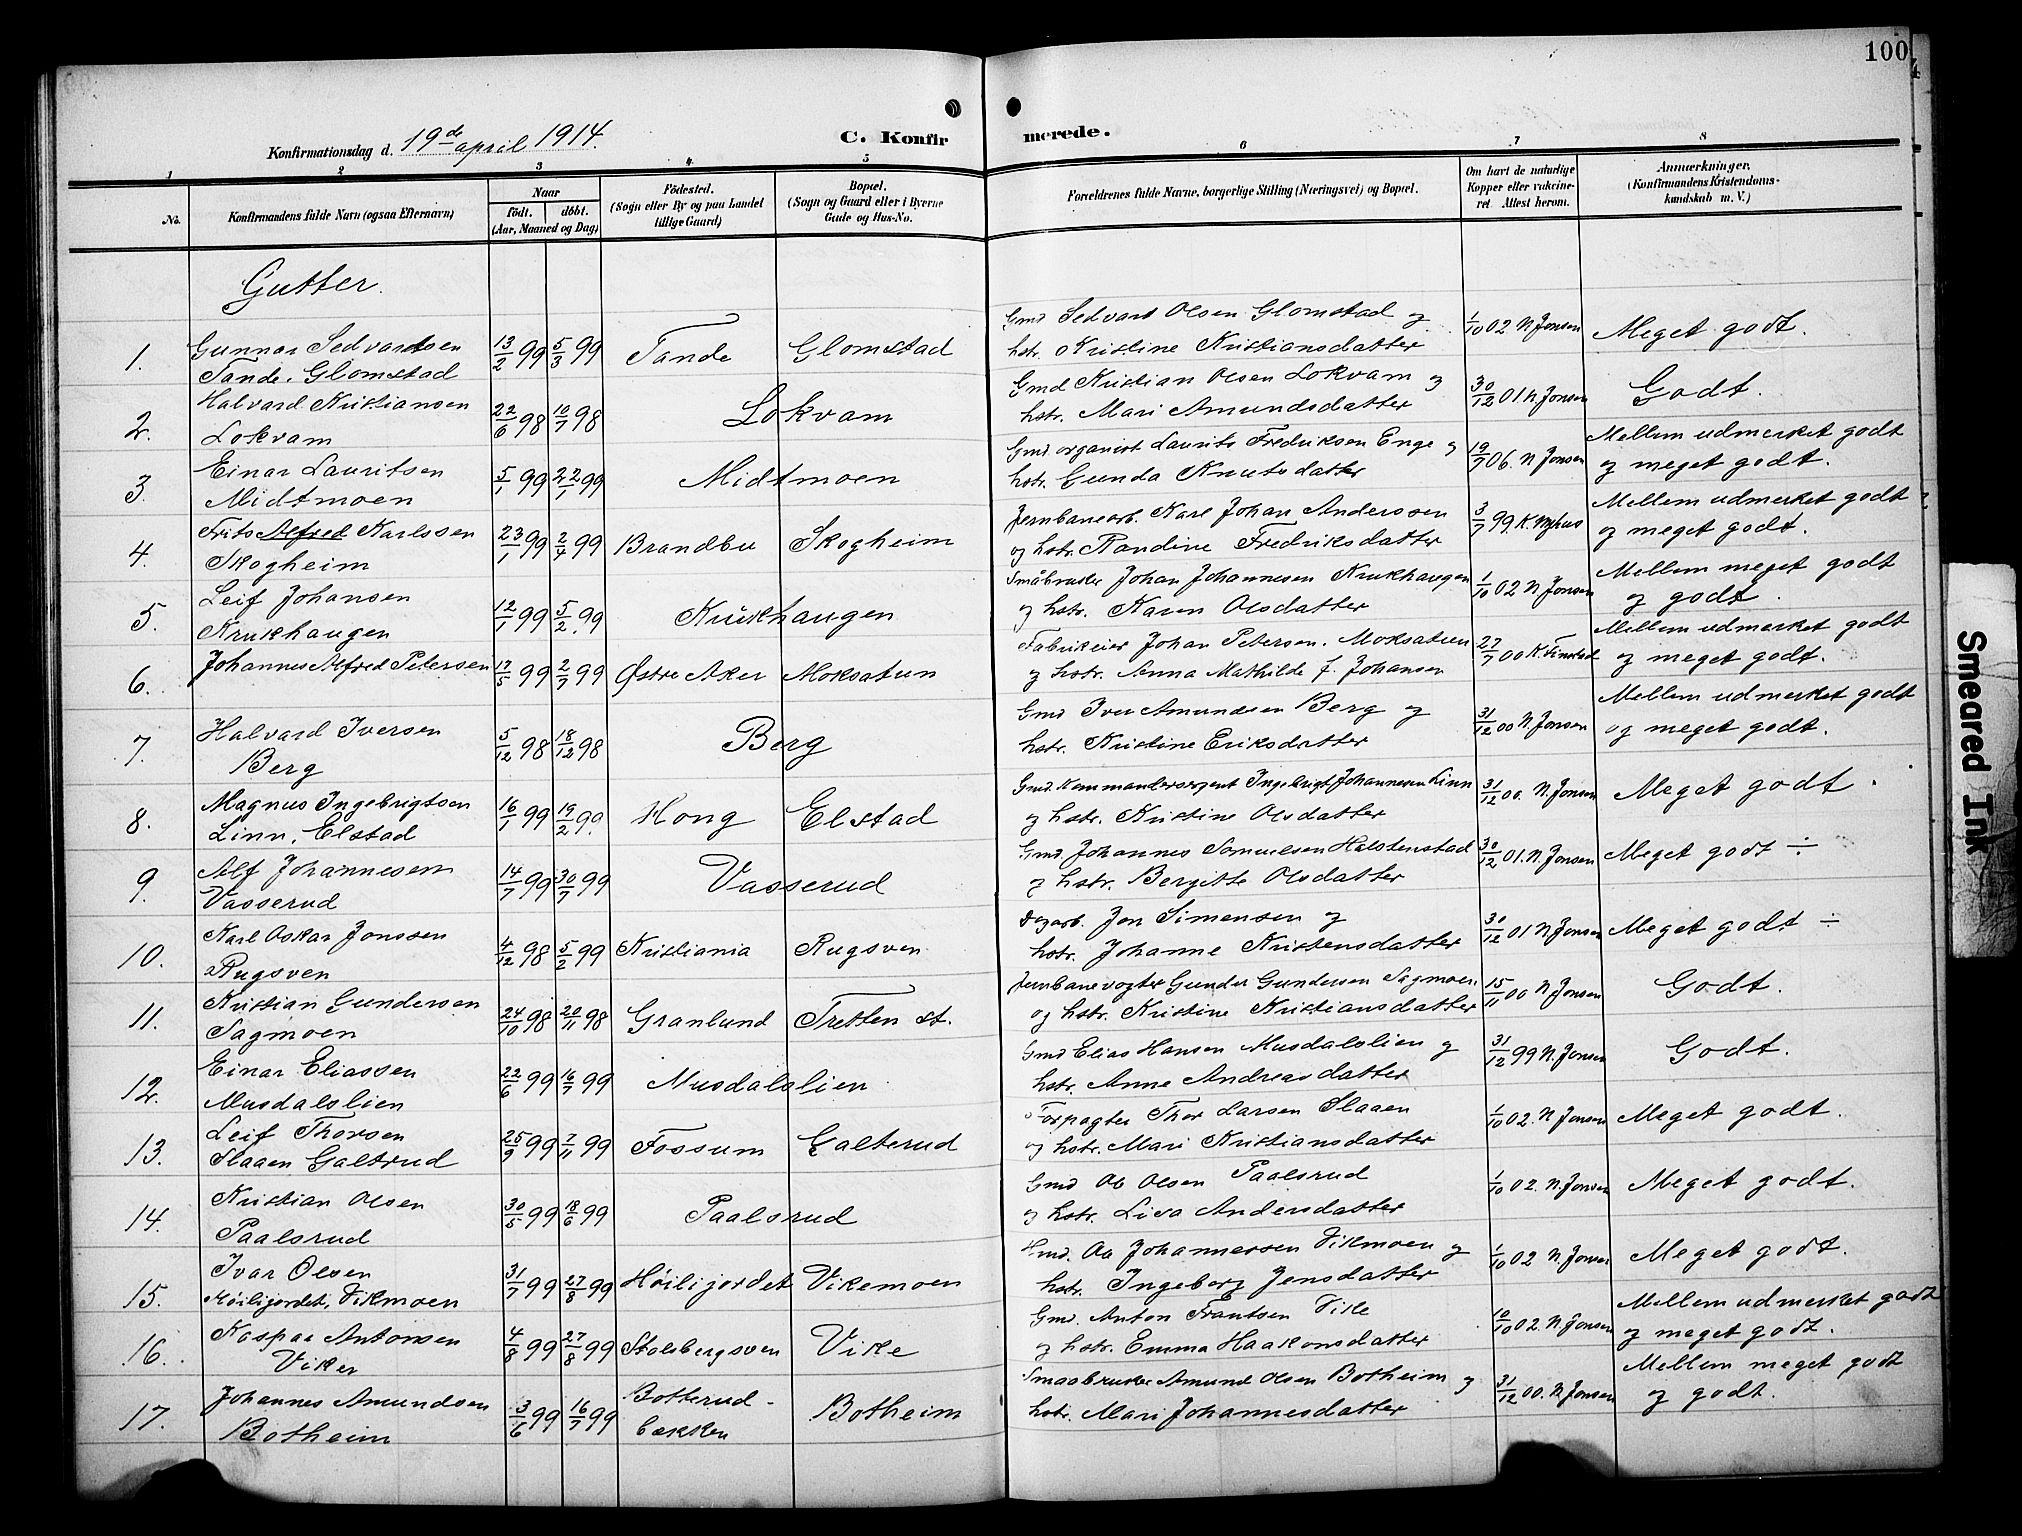 100
4
Konfirmationsdag d. 19de april 1914.
C. Konfir
merede.
1 2 3 4 5 6 7 8
No. Konfirmandens fulde Navn (ogsaa Efternavn) Naar födt. döbt. (Aar, Maaned og Dag) Födested. (Sogn eller By og paa Landet tillige Gaard) Bopæl. (Sogn og Gaard eller i Byerne Gade og Hus-No. Forældrenes fulde Navne, borgerlige Stilling (Næringsvei) og Bopæl. Om havt de naturlige Kopper eller vakcineret. Attest herom. Anmærkninger, (Konfirmandens Kristendomskundskab m. V.)
Gutter.
1. Gunnar Sedvardsen 13/2 99 5/3 99 Tande Glomstad Gmd Sedvard Olsen Glomstad og 1/10 02 N. Jonsen Meget godt.
Tande, Glomstad hstr. Kristine Kristiansdatter
2. Halvard Kristiansen 22/6 98 10/7 98 Lokvam Gmd Kristian Olsen Lokvam og 30/12 01 N. Jonsen Godt.
Lokvam hstr. Mari Amundsdatter
3. Einar Lauritsen 5/1 99 22/1 99 Midtmoen Gmd organist Laurits Fredriksen Enge og 19/7 06. N Jonsen Mellem udmerket godt
Midtmoen hstr. Gunda Knutsdatter og meget godt.
4. Frits Alfred Karlssen 23/1 99 2/4 99 Brandbu Skogheim Jernbanearb. Karl Johan Anderssen 3/7 99 K. Nyhus Mellem udmerket godt
Skogheim og hstr. Randine Fredriksdatter og meget godt.
5. Leif Johansen 12/1 99 5/2 99 Krukhaugen Småbruker Johan Johannesen Krukhaugen 1/10 02 N. Jonsen Mellem meget godt
Krukhaugen og hstr. Karen Olsdatter og godt.
6. Johannes Alfred Petersen 17/5 99 2/7 99 Østre Aker Moksatun Fabrikeier Johan Petersen. Moksatun 27/7 00 K. Finstad Mellem udmerket godt
og hstr. Anna Mathilde f. Johansen og meget godt.
7. Halvard Iversen 5/12 98 18/12 98 Berg Gmd Iver Amundsen Berg og 31/12 00 N. Jonsen Mellem udmerket godt
Berg hstr. Kristine Eriksdatter og meget godt.
8. Magnus Ingebrigtsen 16/1 99 19/2 99. Hong Elstad Gmd. Kommandersergent Ingebrigt Johannesen Linn 31/12 00. N. Jonsen Meget godt.
Linn, Elstad og hstr. Kristine Olsdatter
9. Alf Johannesen 14/7 99 30/7 99 Vasserud Gmd. Johannes Samuelsen Halstenstad 30/12 01. N. Jonsen Meget godt ÷
Vasserud og hstr. Bergitte Olsdatter
10. Karl Oskar Jonssen 4/12 98 5/2 99 Kristiania Rugsven Dagarb. Jon Simensen og 30/12 01 N Jonsen Meget godt ÷
Rugsven hstr. Johanne Kristensdatter
11. Kristian Gundersen 24/10 98 20/11 98 Granlund Tretten st. Jernbanevogter Gunder Gundersen Sagmoen 15/11 00 N Jonsen Godt.
Sagmoen og hstr. Kristine Kristiansdatter
12. Einar Eliassen 22/6 99 16/7 99 Musdalslien Gmd Elias Hansen Musdalslien og 31/12 99 N. Jonsen Godt.
Musdalslien hstr. Anne Andreasdatter
13. Leif Thorsen 25/9 99 7/11 99 Fossum Galterud Forpagter Thor Larsen Slaaen 1/10 02. N Jonsen Meget godt.
Slaaen Galtrud og hstr. Mari Kristiansdatter
14. Kristian Olsen 30/5 99 18/6 99 Paalsrud Gmd Ole Olsen Paalsrud 1/10 02. N. Jonsen Meget godt.
Paalsrud og hstr. Lisa Andersdatter
15. Ivar Olsen 31/7 99 27/8 99 Høilijordet Vikemoen Hmd. Ole Johannessen Vikmoen og 1/10 02 N. Jonsen Meget godt.
Høilijordet, Vikmoen hstr. Ingeborg Jensdatter
16. Kaspar Antonsen 4/8 99 27/8 99 Stalsbergsven Vike Gmd. Anton Frantsen Vike 10/10 02. N. Jonsen Mellem udmerket godt
Viker og hstr. Emma Haakonsdatter og meget godt.
17. Johannes Amundsen 3/6 99 16/7 99 Botterud- Botheim Smaabruker Amund Olsen Botheim og 31/12 00. N. Jonsen Mellem meget godt
Botheim bækken hstr. Mari Johannesdatter og godt.
Smeared Ink